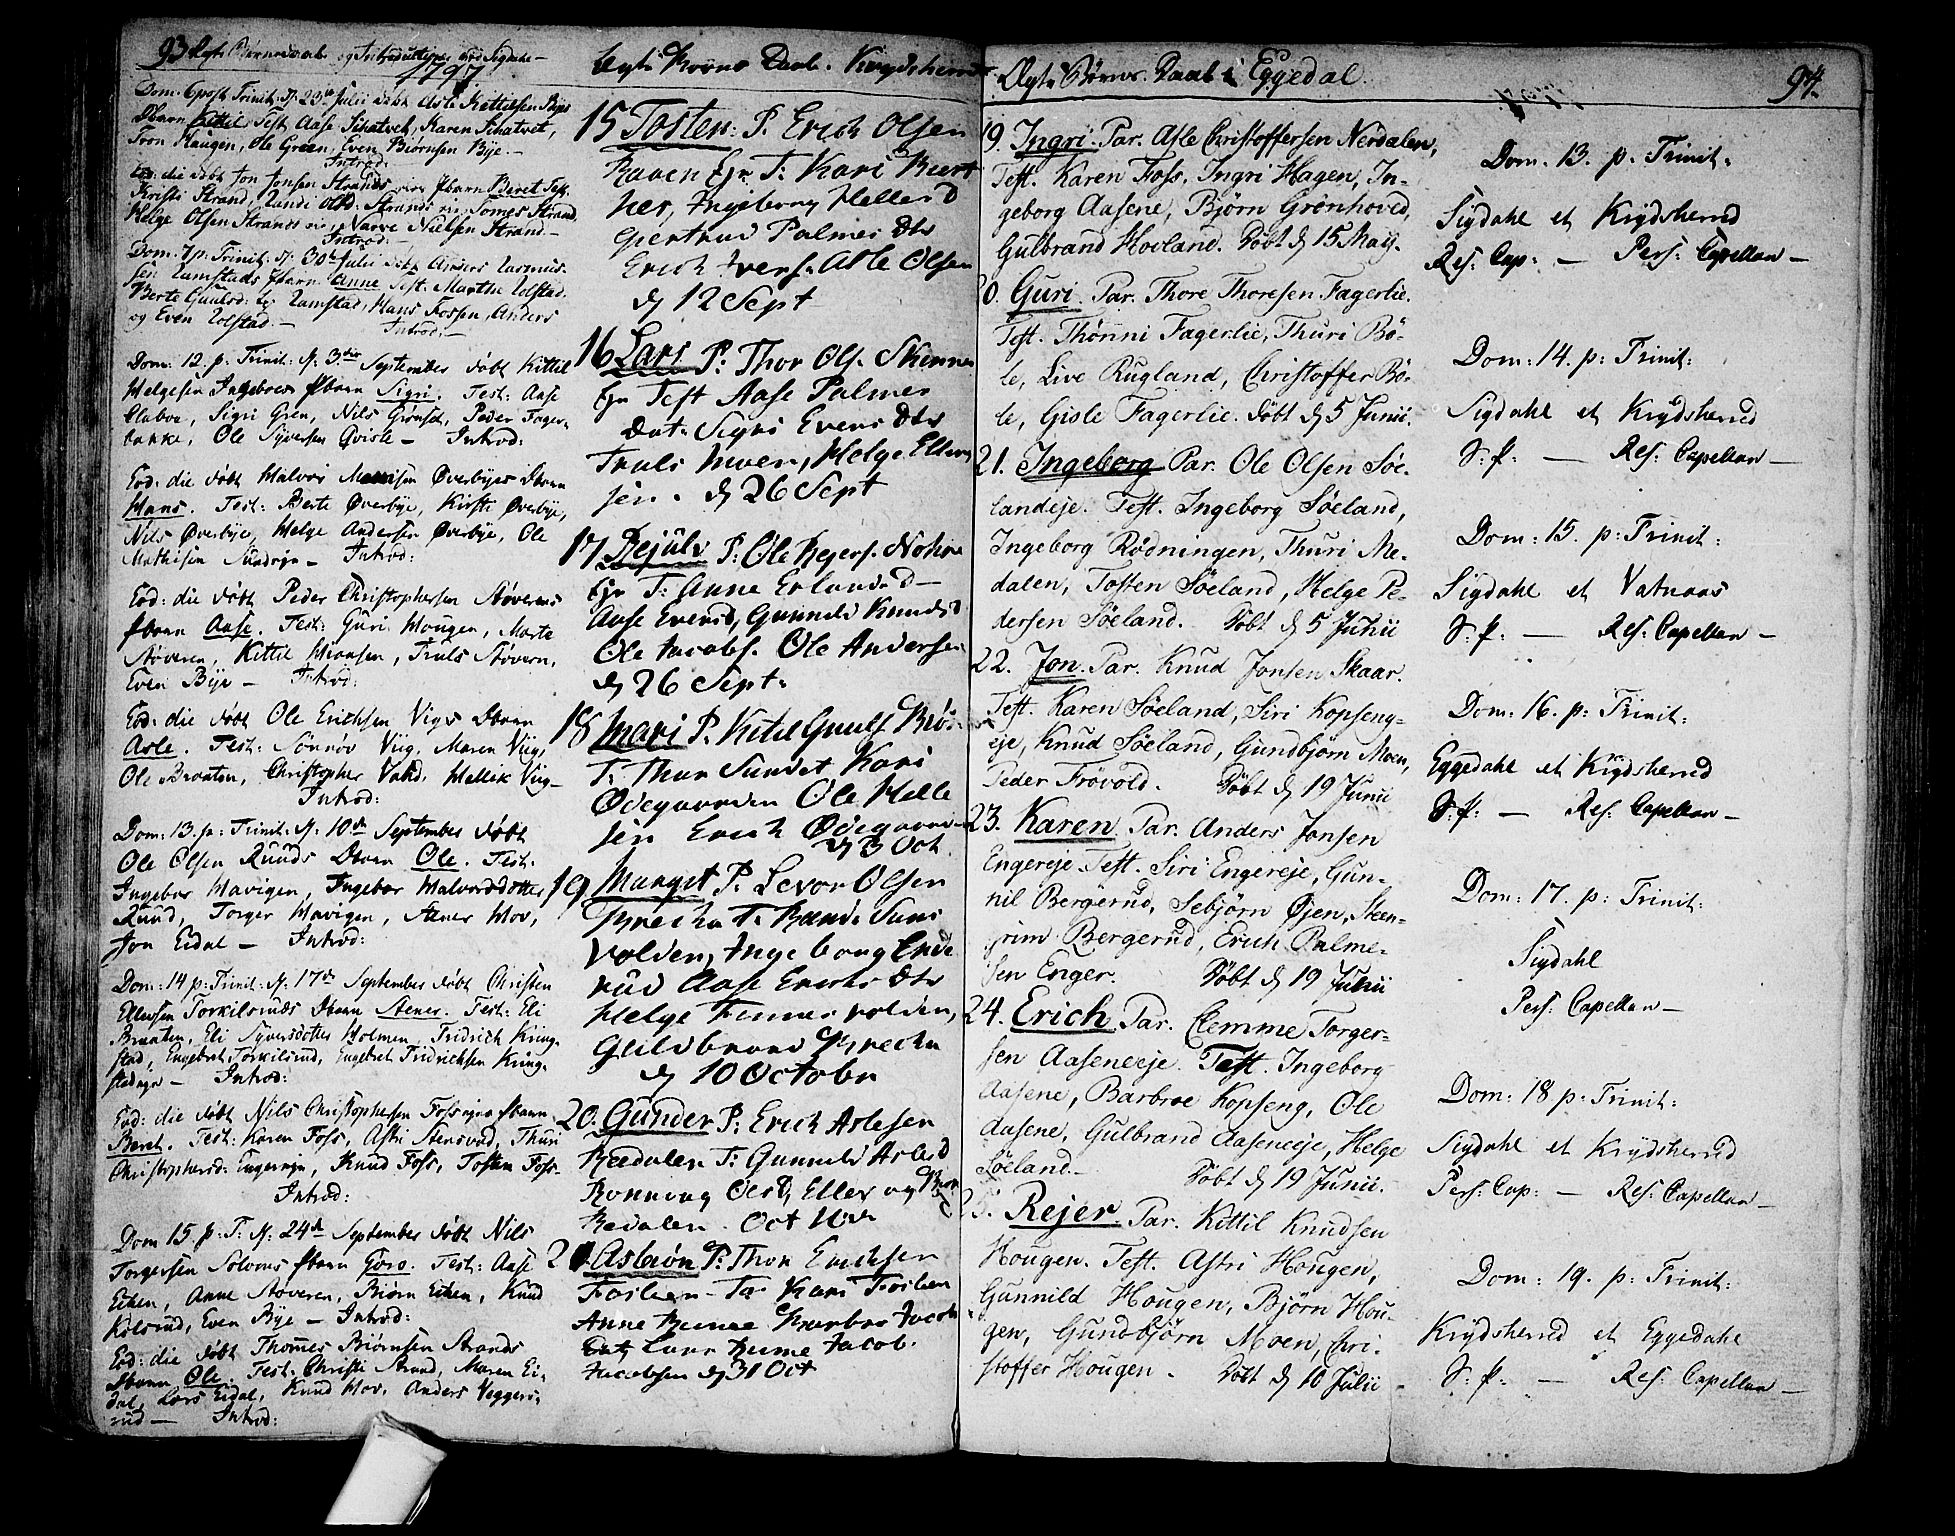 93 Ægte Børnedaab og Introductioner ved Sigdahl
1797
Dom. 6 post Trinit: d. 23de Julii døbt Asle Kittilsen Byes
Dbarn Kittil, Test Aase Schatvet, Karen Schatvet,
Tron Haugen, Ole Green, Even Biørnsen Bye. —
Introd:
Eod: die døbt Jon Jonsen Strands Pbarn Beret Test.
Kristi Strand, Strands Tomes Strand,
Helge Olsen Strands Narve Nielsen Strand. —
Introd: —
Dom. 7 p. Trinit: d. 30te Julii døbt Anders Rasmus-
sen Ramstads Pbarn Anne Test. Marthe Tolstad.
Berte Ramstad, Hans Fossen, Anders
og Even Tolstad. — Introd. —
Dom: 12. p. Trinit: d. 3die September døbt Kittil
Helgesen Ingeboes Pbarn Sigri. Test: Aase
Claboe, Sigri Gren, Nils Grønset, Peder Fager-
bakke, Ole Syversen Qvisle — Introd:
Eod: die døbt Halvor Øverbyes Dbarn
Hans. Test: Berte Øverbye, Kirsti Øverbye,
Nils Øverbye, Helge Andersen Øverbye, Ole
Mathisen — Introd:
Eod: die døbt Peder Christophersen Støverens
Pbarn Aase. Test: Guri Hougen, Marte
Støveren, Kittil Hiransen, Truls Støvern,
Even Bye — Introd:
Eod: die døbt Ole Erichsen Vigs Dbarn
Asle. Test: Sønnøv Viig, Maren Viig,
Ole Braaten, Christopher Vahd, Hellik Viig —
Introd:
Dom: 13. p: Trinit: d. 10de September døbt
Ole Olsen Ruuds Dbarn Ole. Test:
Ingebor Havigen, Ingebor Halvorsdotter
Ruud, Torger Havigen, Stener Hov,
Jon Eidal — Introd:
Dom: 14 p: Trinit: d. 17de September døbt Christen
Ellevsen Torkilsruds Dbarn Stener. Test: Eli
Braaten, Eli Syversdotter Holmen, Fridrich Kring-
stad, Engebret Torkilsrud, Engebret Fridrichsen Kring-
stadeje — Introd:
Eod: die døbt Nils Christophersen Fosseies Pbarn
Beret. Test: Karen Foss, Astri Stensrud, Thuri
Christophersd: Engereje, Knud Foss, Tosten Foss —
Introd:
Dom 15. p: T: d. 24de September døbt Nils
Torgersen Solvens Pbarn Goro. Test: Aase
Eiken, Anne Støveren, Biørn Eiken, Knud
Kolsrud, Even Bye — Introd:
Eod: die døbt Thomes Biørnsen Strands
Dbarn Ole. Test: Christi Strand, Maren Ei-
dal, Lars Eidal, Knud Hov, Anders Veggers-
rud — Introd:
Ægte Børns Daab. Krydsherred
15 Tosten. P. Erich Olsen
Raaen Eje T: Kari
Ingeborg Hellesd
Giertrud Palmes Dtr
Erich Ivers. Asle Olsen
d 12 Sept
16 Lars P: Thor Ols. Skinnes
Eje Test Aase Palmes
Dat. Sigri Evens Dtr
Truls Moen, Helge Ellens
sen. d 26 Sept
17 Rejulv P: Ole Rejers. Nohre
Eje T: Anne Erlandsd —
Aase Evensd, Gunnild Knudsd
Ole Jacobs. Ole Andersen
d 26 Sept.
18 Mari P. Kitel Gulls Brøs
T: Thor Sundet Kari
Ødegaarden Ole Helle
sen Erich Ødegaarden
d 3 Oct
19 Margit P. Levor Olsen
Brecha T. Rand
volden, Ingeborg Ende
rud Aase Erichs Dtr
Helge Finnesvolden,
Guldbrand Brecha
d 10 Octobr
20. Gunder P: Erich Aslesen
Reedalen T: Gunnild Aslesd
Ronning Olsd, Ellef og
Redalen. Oct 10de
21 Asbiøn P: Thor Erichsen
Foslien — Ta Kari Foslien
Anne Barbro Jacob
Dat, Lars Jacob.
Jacobsen d 31 Oct
Ægte Børns Daab i Eggedal.
94.
19. Ingri. Par. Asle Christoffersen Nerdalen,
Test. Karen Foss, Ingri Hagen, In-
geborg Aasene, Björn Grönhoved,
Gulbrand Hovland. Döbt d 15 May.
20. Guri. Par. Thore Thoresen Fagerlie.
Test. Thönni Fagerlie, Thuri Bö-
le, Live Rugland, Christoffer Bö-
le, Gisle Fagerlie. Döbt d 5 Junii.
21. Ingeborg Par. Ole Olsen Söe-
landeje. Test. Ingeborg Söeland,
Ingeborg Rödningen, Thuri Me-
dalen, Tosten Söeland, Helge Pe-
dersen Söeland. Döbt d 5 Junii
22. Jon. Par. Knud Jonsen Skaar.
Test. Karen Söeland, Siri Kopseng-
eje, Knud Söeland, Gundbjörn Moen,
Peder Frövold. Döbt d 19 Junii
23. Karen Par. Anders Jonsen
Engereje Test. Siri Engereje, Gun-
nil Bergerud, Sebjörn Øjen, Steen-
grim Bergerud, Erich Palme-
sen Enger. Döbt d 19 Junii
24. Erich Par. Clemme Torger-
sen Aaseneeje. Test. Ingeborg
Aasene, Barbroe Kopseng, Ole
Aasene, Gulbrand Aaseneeje, Helge
Söeland. — Döbt d 19 Junii.
25. Rejer Par. Kittil Knudsen
Hougen. Test. Astri Hougen,
Gunnild Hougen, Björn Hou-
gen, Gundbjörn Moen, Chri-
stoffer Hougen. Döbt d 10 Julii
Dom. 13. p. Trinit:
Sigdahl et Krydsherred
Res. Cap: — Pers: Capellan —
Dom: 14. p: Trinit:
Sigdahl et Krydsherred
S: p: — Res: Capellan —
Dom: 15. p: Trinit:
Sigdahl et Vatnaas
S: p: — Res: Capellan —
Dom: 16. p: Trinit:
Eggedahl et Krydsherred
S: p: — Res: Capellan —
Dom: 17. p: Trinit:
Sigdahl
Pers: Capellan —
Dom: 18 p: Trinit:
Sigdahl et Krydsherred
Pers: Cap: — Res: Capellan —
Dom: 19. p: Trinit:
Krydsherred et Eggedahl
S: p: — Res: Capellan —